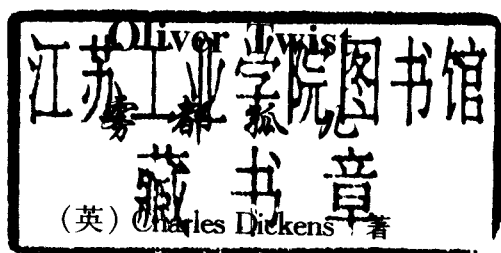 Oliver Twist
江苏工业学院图书馆
雾都孤儿
藏书章
(英) Charles Dickens 著